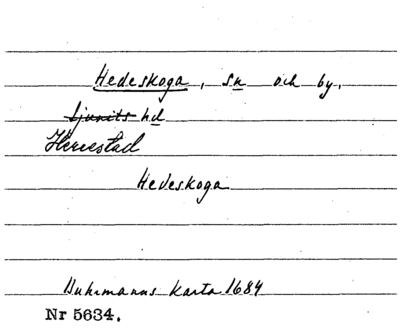 Hedeskoga, sn och by.
Ljunits hd
Herrestad
Hedeskoga
Buhrmanns karta 1684
Nr 5634.